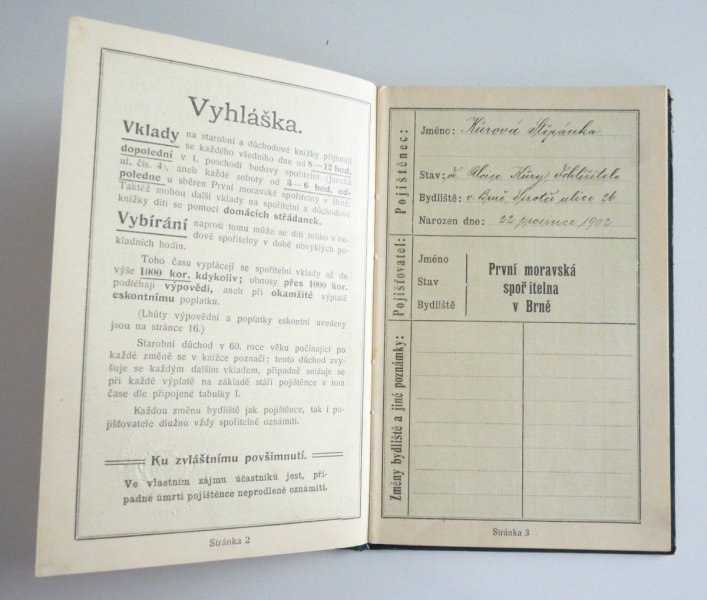 Vyhláška.
Vklady na starobní a důchodové knížky přijímají
se každého všedního dne od 8—12 hod.
dopolední v I. poschodí budovy spořitelny (Janská
ul. čís. 4), aneb každé soboty od 3—6 hod. od-
poledne u sběren První moravské spořitelny v Brně.
Taktéž mohou další vklady na spořitelní a důchodové
knížky díti se pomocí domácích střádanek.
Vybírání naproti tomu může se díti toliko v bu-
dově spořitelny v době obvyklých po-
kladních hodin.
Toho času vyplácejí se spořitelní vklady až do
výše 1000 kor. kdykoliv; obnosy přes 1000 kor.
podléhají výpovědi, aneb při okamžité výplatě
eskontnímu poplatku.
(Lhůty výpovědní a poplatky eskontní uvedeny
jsou na stránce 16.)
Starobní důchod v 60. roce věku počínající po
každé změně se v knížce poznačí; tento důchod zvy-
šuje se každým dalším vkladem, případně snižuje se
při každé výplatě na základě stáří pojištěnce v tom
čase dle připojené tabulky I.
Každou změnu bydliště jak pojištěnce, tak i po-
jišťovatele dlužno vždy spořitelně oznámiti.
Ku zvláštnímu povšimnutí.
Ve vlastním zájmu účastníků jest, pří-
padné úmrtí pojištěnce neprodleně oznámiti.
Stránka 2
Pojištěnec:
Jméno: Kürová Štěpánka
Stav: Aloise Kúry,
Bydliště: v Brně, Sirotčí ulice 26
Narozen dne: 22 prosince 1902
Pojišťovatel:
Jméno
Stav
Bydliště
První moravská
spořitelna
v Brně
Změny bydliště a jiné poznámky:
Stránka 3